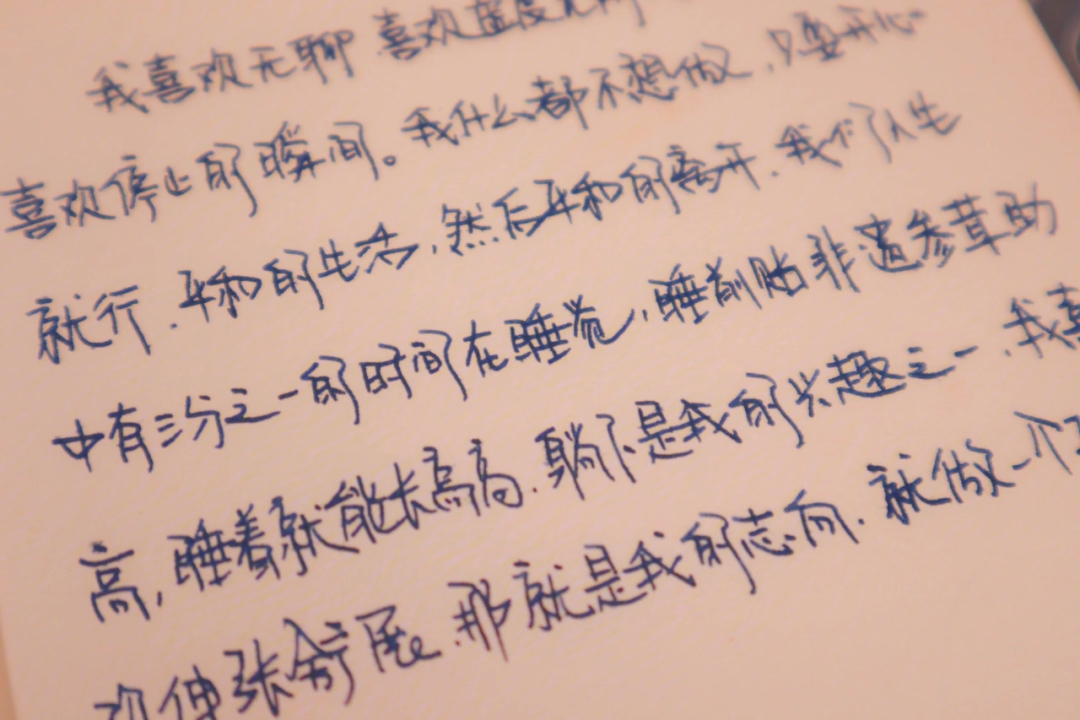 我喜欢无聊 喜欢
喜欢停止的瞬间。我什么都不想做，只要开心
就行.平和的生活,然后平和的离开.我们人生
中有三分之一的时间在睡觉,睡前贴非遗参茸助
高,睡着就能长高高.躺下是我的兴趣之一.我喜
欢伸张舒展.那就是我的志向.就做一个